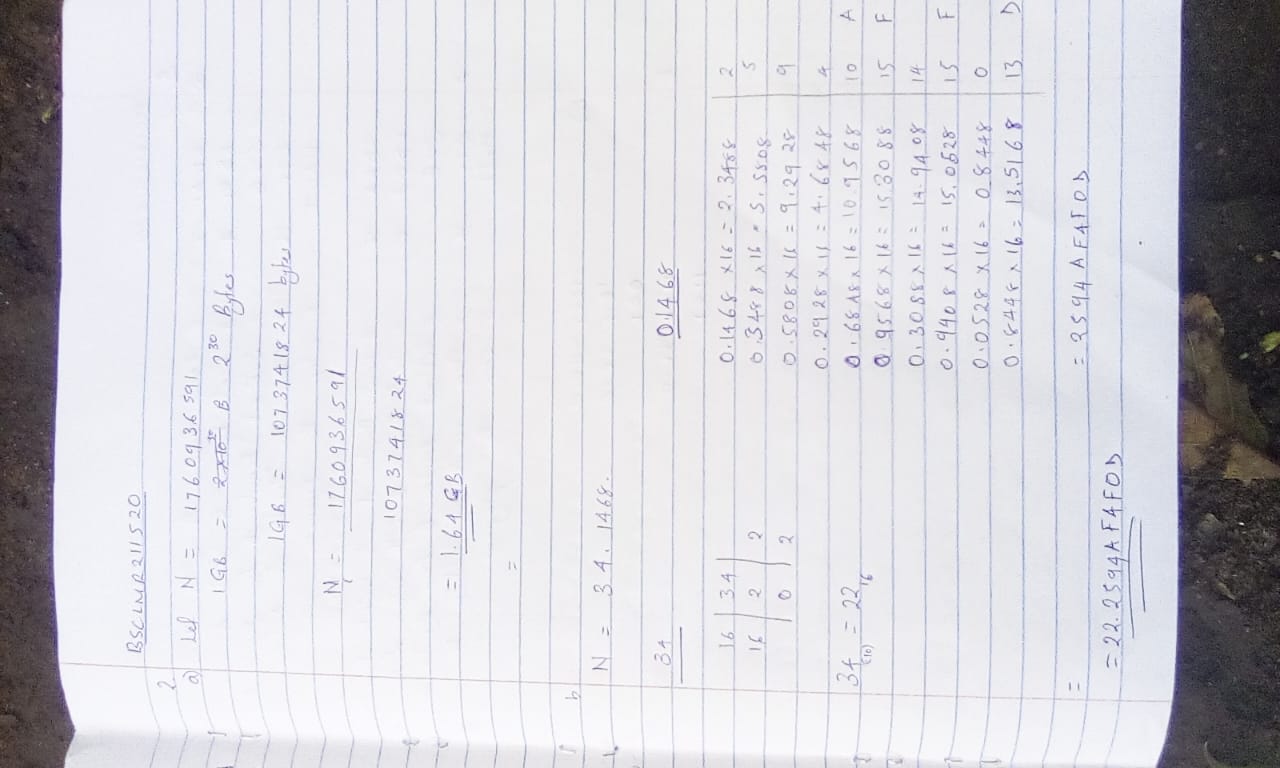 BSCLMR211520
2.
a) Let N = 1760936591
1GB = B 2^30 Bytes
1GB = 1073741824 bytes
N = 1760936591
1073741824
= 1.64 GB
=
b
N = 34.1468.
34 0.1468
16 | 34 | 0.1468 x 16 = 2.3488 2
16 | 2 | 2 0.3488 x 16 = 5.5808 5
0 | 2 0.5808 x 16 = 9.2928 9
0.2928 x 16 = 4.6848 4
34 (10) = 22 16 0.6848 x 16 = 10.9568 10 A
0.9568 x 16 = 15.3088 15 F
0.3088 x 16 = 14.9408 14
0.9408 x 16 = 15.0528 15 F
0.0528 x 16 = 0.8448 0
0.8448 x 16 = 13.5168 13 D
= = 2594AF4F0D
= 22.2594AF4F0D